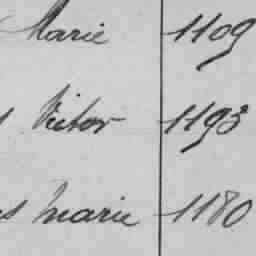 Marie 1109
s Victor 1193
s Marie 1180